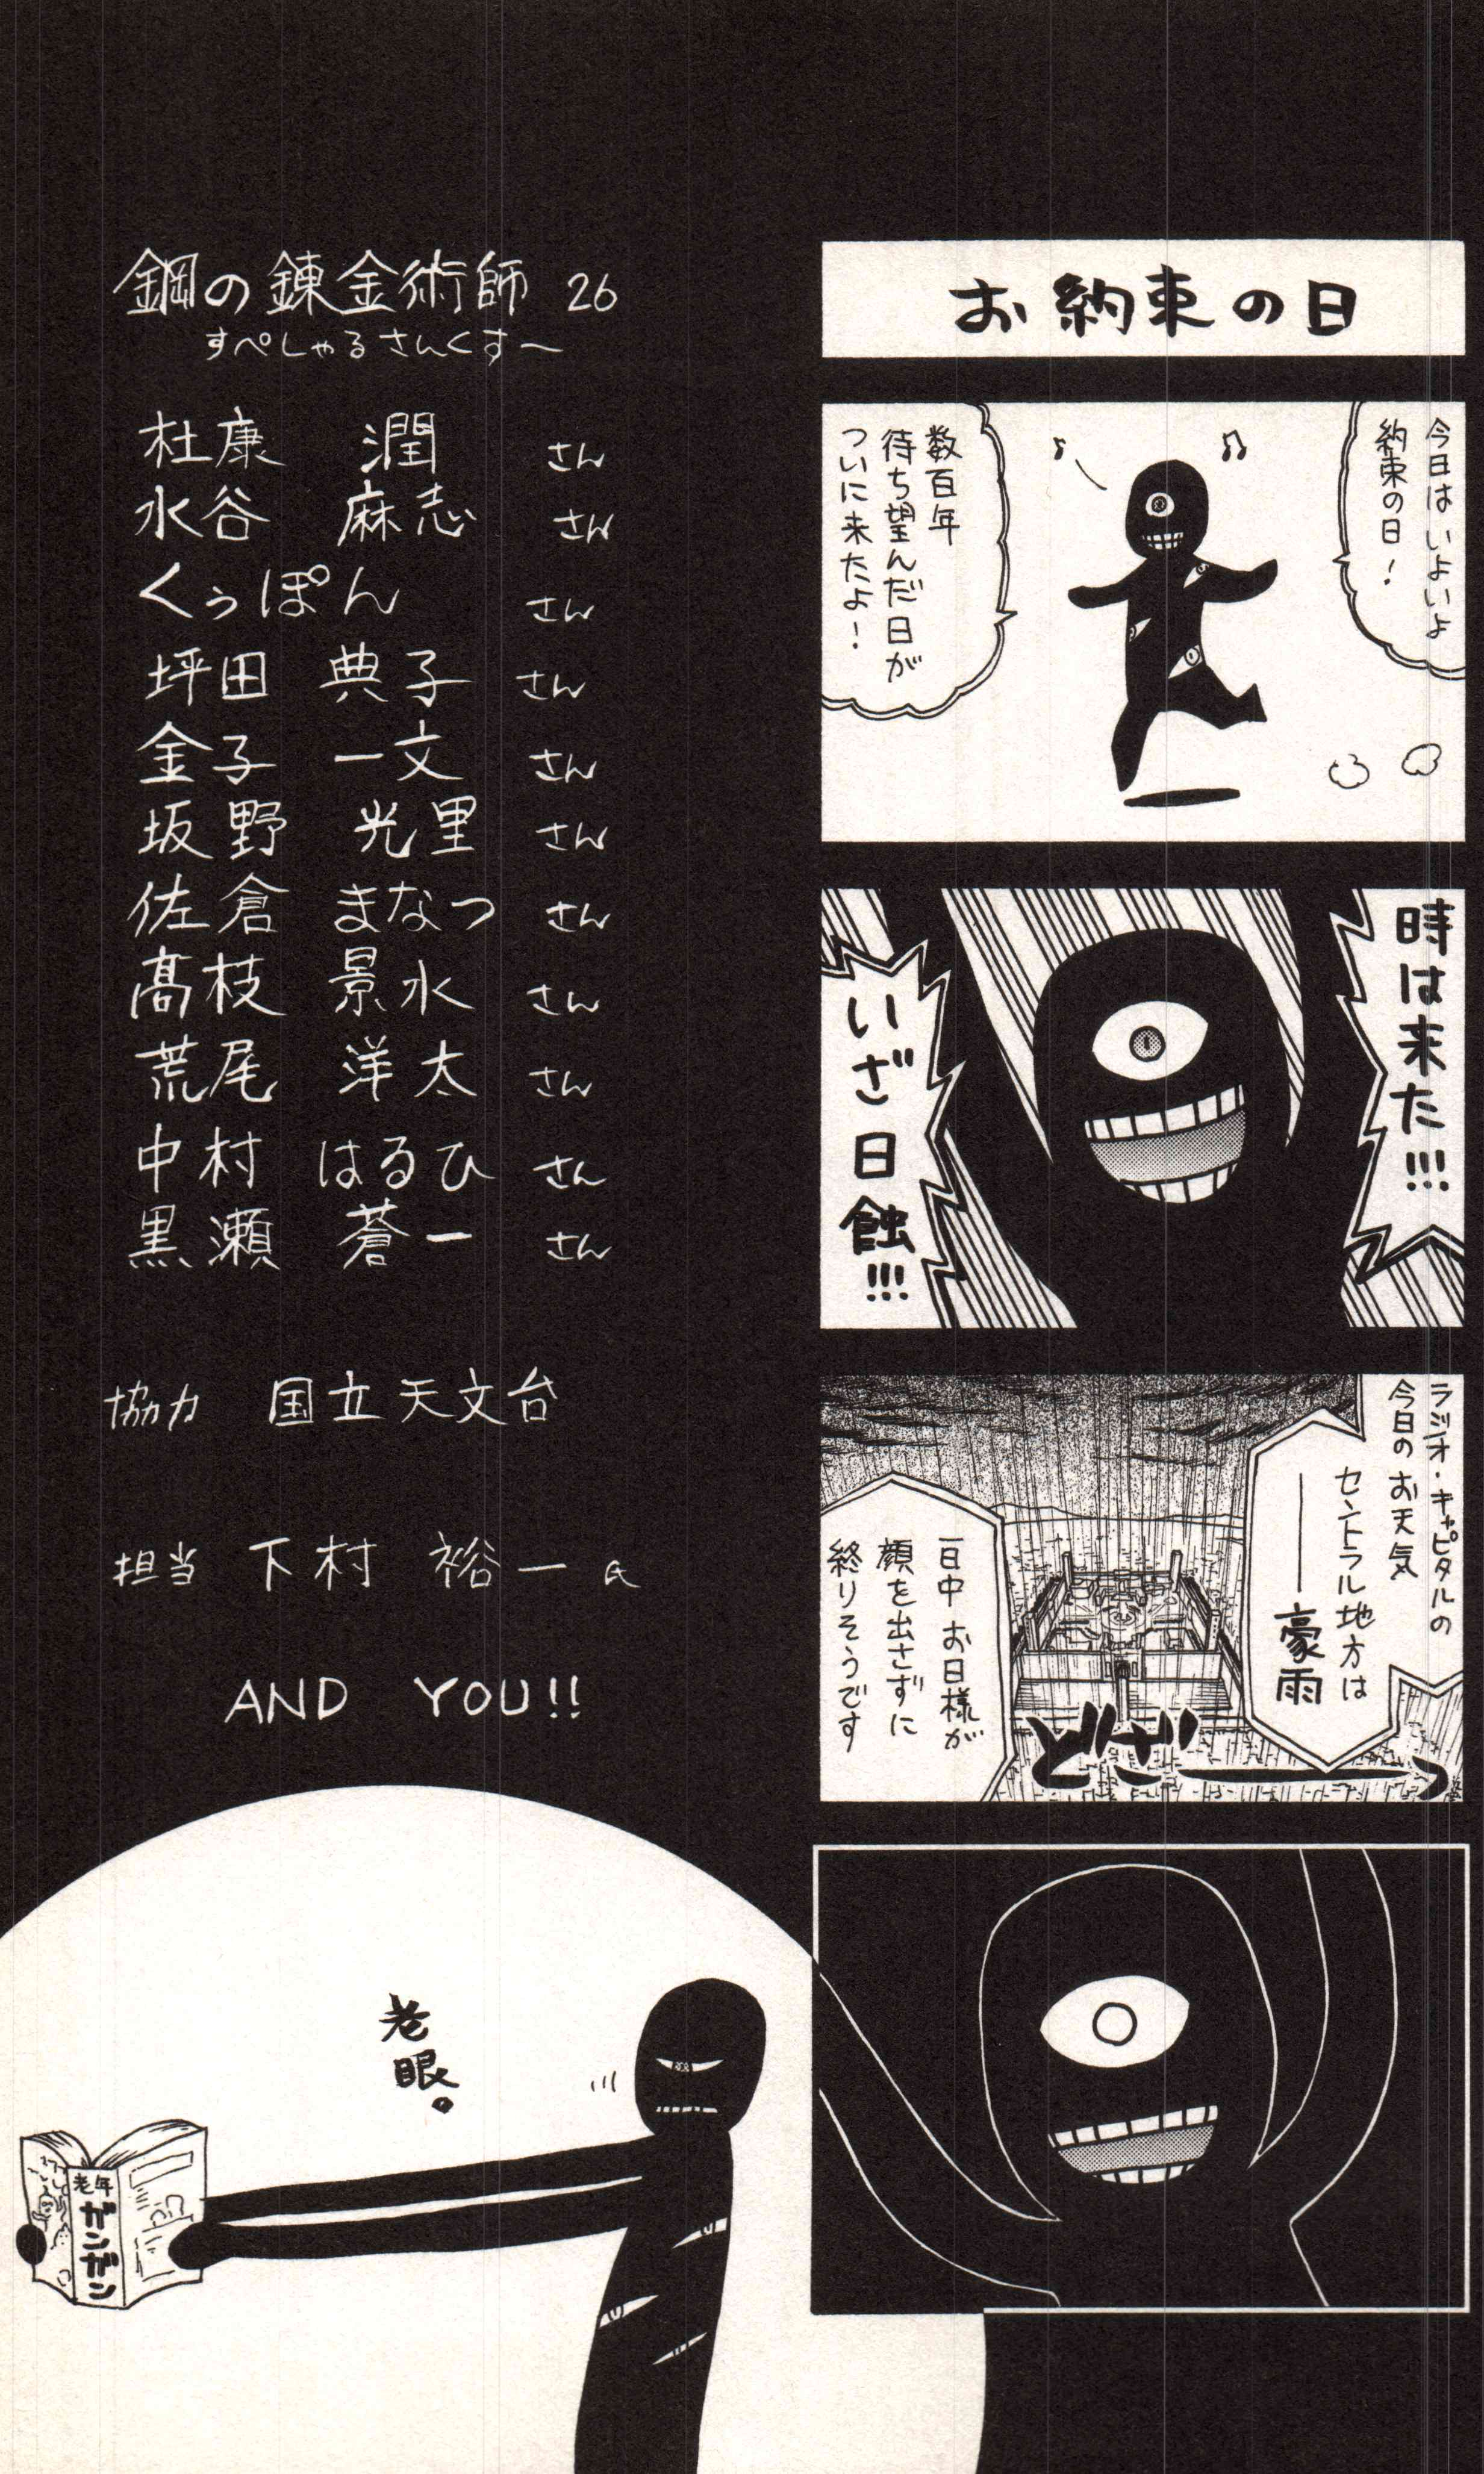 お約束の日
今日はいよいよ
約束の日！
数百年
待ち望んだ日が
ついに来たよ！
時は来た!!!
いざ日蝕!!!
ラジオ・キャピタルの
今日のお天気
セントラル地方は
――豪雨
一日中お日様が
顔を出さずに
終りそうです
どざーーっ
鋼の錬金術師 26
すぺしゃるさんくす〜
杜康 潤 さん
水谷 麻志 さん
くぅぽん さん
坪田 典子 さん
金子 一文 さん
坂野 光里 さん
佐倉 まなつ さん
髙枝 景水 さん
荒尾 洋太 さん
中村 はるひ さん
黒瀬 蒼一 さん
協力 国立天文台
担当 下村 裕一 氏
AND YOU!!
老眼。
老年
ガンガン